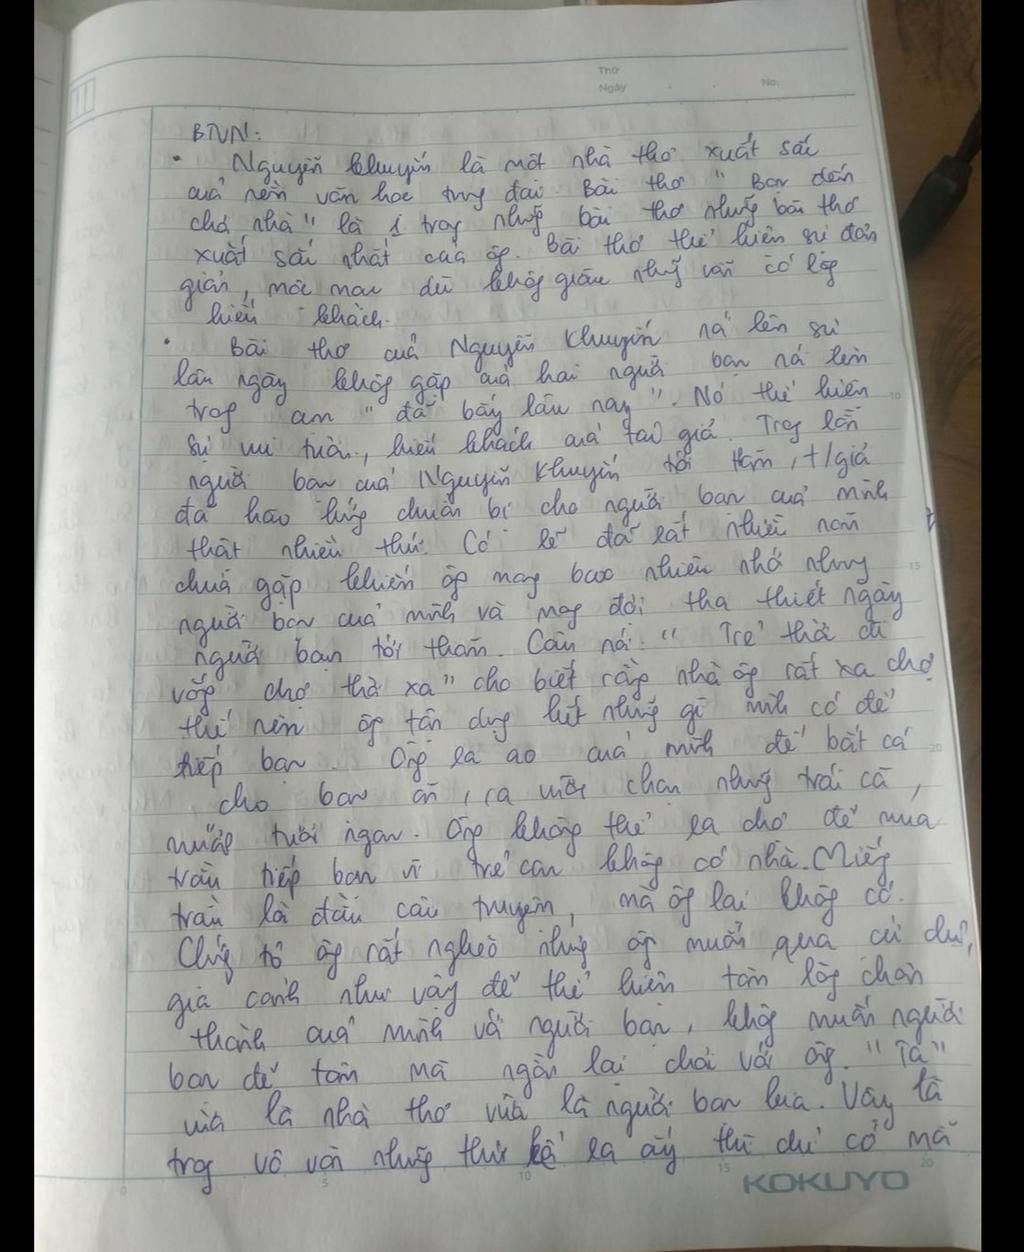 Thứ
Ngày No.
BTVN:
• Nguyễn Khuyến là một nhà thơ xuất sắc
cuả nền văn học trung đại Bài thơ " Bạn đến
chơi nhà" là 1 trong những bài thơ những bài thơ
xuất sắc nhất của ông. Bài thơ thể hiện sự đơn
giản, mộc mạc dù không giàu nhưng vẫn có lòng
hiếu khách.
• Bài thơ cuả Nguyễn Khuyến nói lên sự
lâu ngày không gặp cuả hai người bạn nó lên
trong "đã bấy lâu nay". Nó thể hiện
sự vui tươi, hiếu khách cuả tác giả. Trong lần
người bạn cuả Nguyễn Khuyến tới thăm, t/giả
đã háo hứng chuẩn bị cho người bạn cuả mình
thật nhiều thứ. Có lẽ đã rất nhiều năm
chưa gặp khiến ông mong bao nhiêu nhớ nhung
người bạn cuả mình và mong đợi tha thiết ngày
người bạn tới thăm. Câu nói: " Trẻ thời đi
vắng chợ thời xa" cho biết rằng nhà ông rất xa chợ
thế nên ông tận dụng hết những gì mình có để
tiếp bạn. Ông ra ao cuả mình để bắt cá
cho bạn ăn, ra vườn chọn những trái cà,
mướp tươi ngon. Ông không thể ra chợ để mua
trầu tiếp bạn vì trẻ con không có nhà. Miếng
trầu là đầu câu truyện, mà ông lại không có.
Chứng tỏ ông rất nghèo nhưng ông muốn qua cử chỉ,
gia cảnh như vậy để thể hiện tấm lòng chân
thành cuả mình với người bạn, không muốn người
bạn để tâm mà ngần lại chơi với ông. "Ta"
vừa là nhà thơ vừa là người bạn kia. Vậy là
trong vô vàn những thứ kể ra ấy thì chỉ có mỗi
KOKUYO